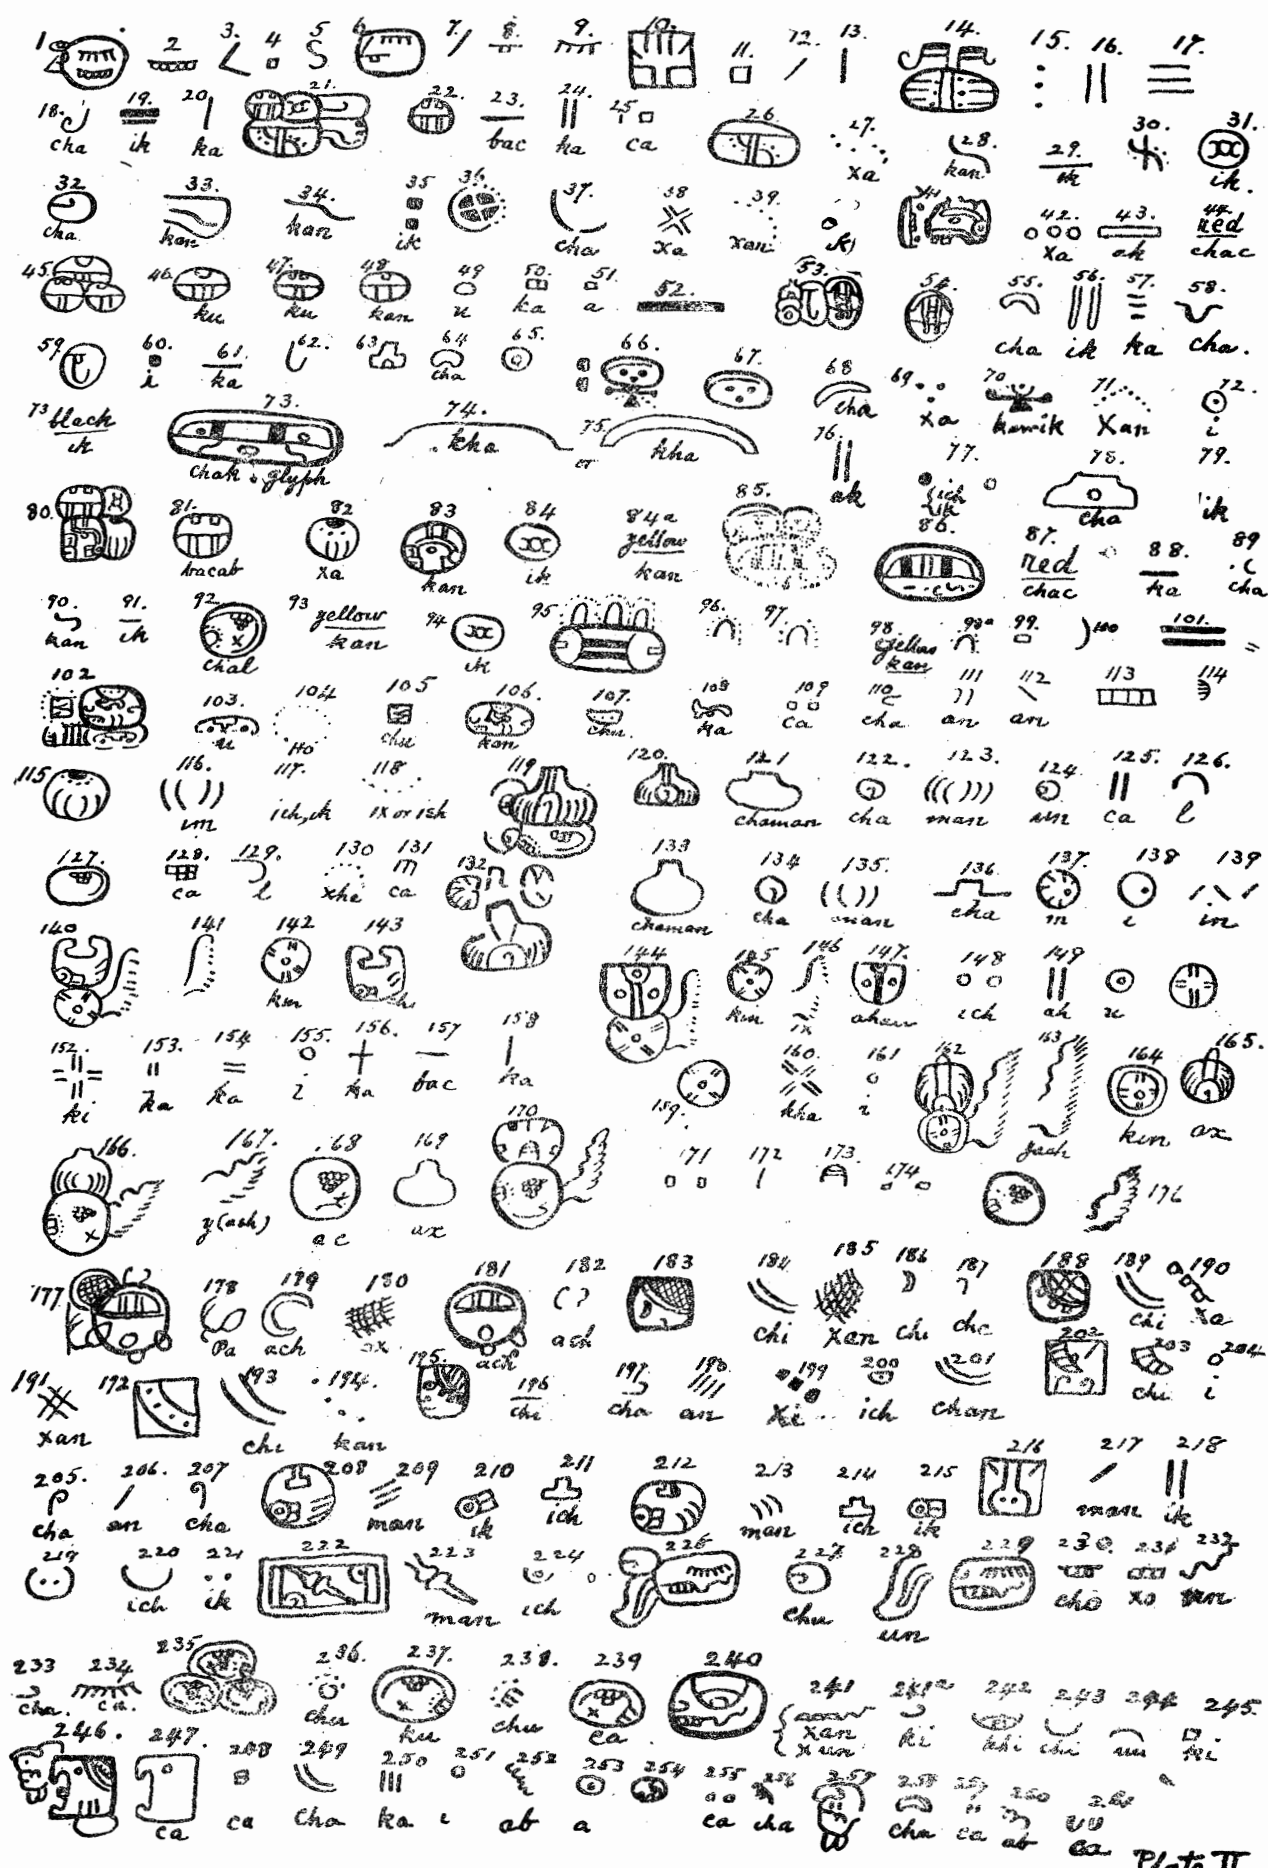 1 2 3. 4 5 6 7. 8. 9. 10. 11. 12. 13. 14. 15. 16. 17.
18. cha 19. ik 20 ka 21. 22. 23. bac 24. ka 25 ca 26. 27. xa 28. kan 29. ok 30. 31. ik.
32 cha 33. kan 34. kan 35 ik 36. 37. cha 38 xa 39. xan ik 42. xa 43. ok 44. red chac
45. 46. ku 47. ku 48 kan 49 u 50. ka 51. a 52. 53. 54. 55. cha 56. ik 57. ka 58. cha.
59 60. i 61. ka 62. 63 64 cha 65. 66. 67. 68 cha 69. xa 70 kanik 71. Xan 72. i
73 black ik 73. chak glyph 74. kha 75. or kha 76. ak 77. ich ik 78. cha 79. ik
80. 81. bacab 82 xa 83 kan 84 ik 84a yellow kan 85. 86. 87. red chac 88. ka 89 cha
90. kan 91. ik 92 chal 93 yellow kan 94 ik 95 96. 97. 98. yellow kan 98a 99. 100 101.
102 103. u 104 Ho 105 chu 106. kan 107. chu 108 ka 109 ca 110 cha 111 an 112 an 113 114
115 116. im 117. ich, ik 118. ix or ish 119 120. 121 chaman 122. cha 123. man 124. un 125. ca 126. l
127. 128. ca 129. l 130 xha 131 ca 132. 133 chaman 134 cha 135. man 136. cha 137. in 138 i 139 im
140 141 142 kin 143 144 145 kin 146 ix 147. ahau 148 ich 149 ak u
152. ki 153. ka 154 ka 155. i 156. ka 157 bac 158 ka 159. 160. kha 161 i 162 163 yash 164 kin 165. ax
166. 167. y(ash) 168 ac 169 ax 170 171 172 173. 174. 176
177 178 Pa 179 ach 180 ox 181 ach 182 ach 183 184 chi 185 xan 186 chi 187 cha 188 189 chi 190 xa
191 xan 192 193 chi 194. kan 195. 196 chi 197. cha 198 an 199 xi 200 ich 201 chan 202 203 chi 204 i
205. cha 206. an 207 cha 208 209 man 210 ik 211 ich 212 213 man 214 ich 215 ik 216 217 man 218 ik
219 220 ich 221 ik 222 223 man 224 ich 226 227 chu 228 un 229 230. cho 231 xo 232
233 cha. 234 ca. 235 236. chu 237. ku 238. chu 239 ca 240 241 xan xun 241a ki 242 khi 243 chi 244 un 245. ki
246. 247. ca 248 ca 249 cha 250 ka 251 i 252 ab 253 a 254 255 ca 256 cha 257 258 cha 259 ca 260 ab 261 ca
Plate II